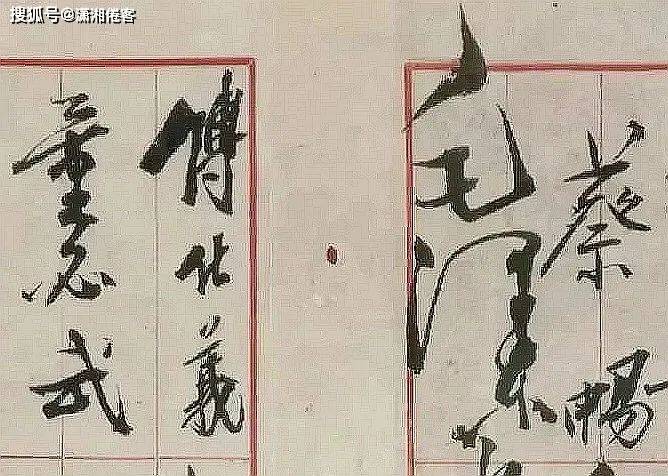 搜狐号@潇湘捲客
蔡暢
毛澤
傅作義
董必武